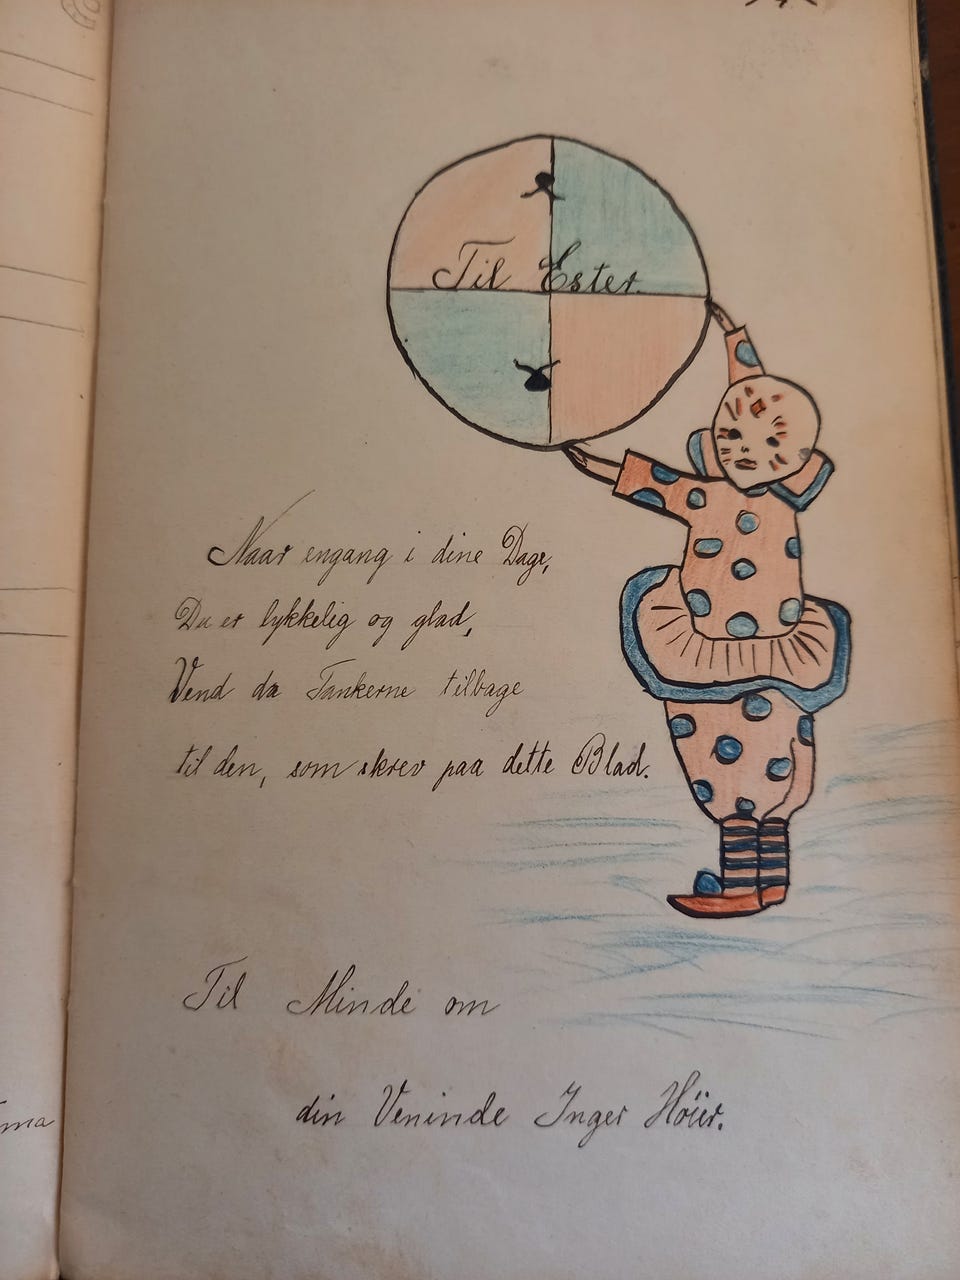 Til Ester.
Naar engang i dine Dage,
Du er lykkelig og glad,
Vend da Tankerne tilbage
til den, som skrev paa dette Blad.
Til Minde om
din Veninde Inger Höier.